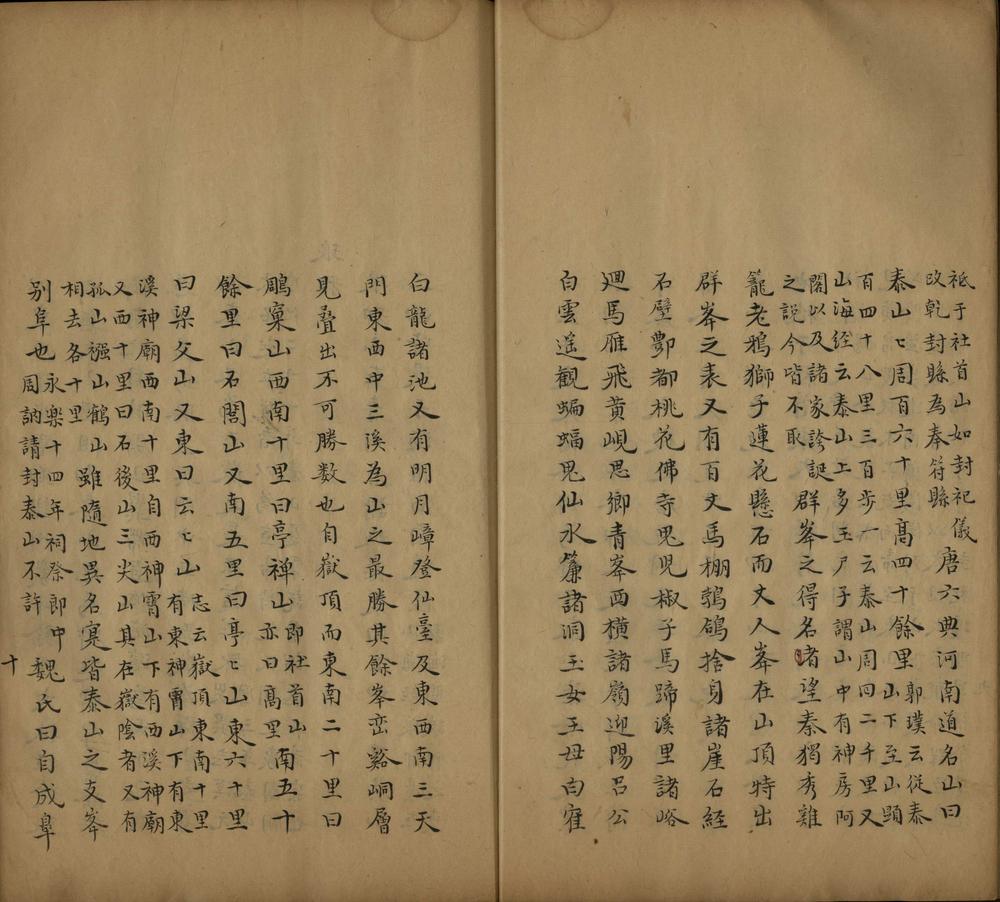 祗于社首山如封祀儀
改乾封縣為奉符縣
唐六典河南道名山曰
泰山〻周百六十里高四十餘里
郭璞云從泰
山下至山頭
百四十八里三百步一云泰山周回二千里又
山海経云泰山上多玉尸子謂山中有神房阿
閣以及諸家誇誕
之説今皆不取
群峯之得名者望秦獨秀雞
籠老鴉獅子蓮花懸石而丈人峯在山頂特出
群峯之表又有百丈馬棚鵓鴿捨身諸崖石経
石壁酆都桃花佛寺鬼児椒子馬蹄溪里諸峪
迴馬雁飛黄峴思鄉青峯西横諸嶺迎陽呂公
白雲遥観蝙蝠鬼仙水簾諸洞玉女王母白雀
白龍諸池又有明月嶂登仙臺及東西南三天
門東西中三溪為山之最勝其餘峯巒谿峒層
見疊出不可勝数也自嶽頂而東南二十里曰
鵰窠山西南十里曰亭禅山
即社首山
亦曰高里
南五十
餘里曰石閭山又南五里曰亭〻山東六十里
曰梁父山又東曰云〻山
志云嶽頂東南十里
有東神霄山下有東
溪神廟西南十里自西神霄山下有西溪神廟
又西十里曰石後山三尖山其在嶽陰者又有
孤山襁山鶴山
相去各十里
雖隨地異名寔皆泰山之支峯
别阜也
永樂十四年祠祭即中
周訥請封泰山不許
魏氏曰自成皐
十